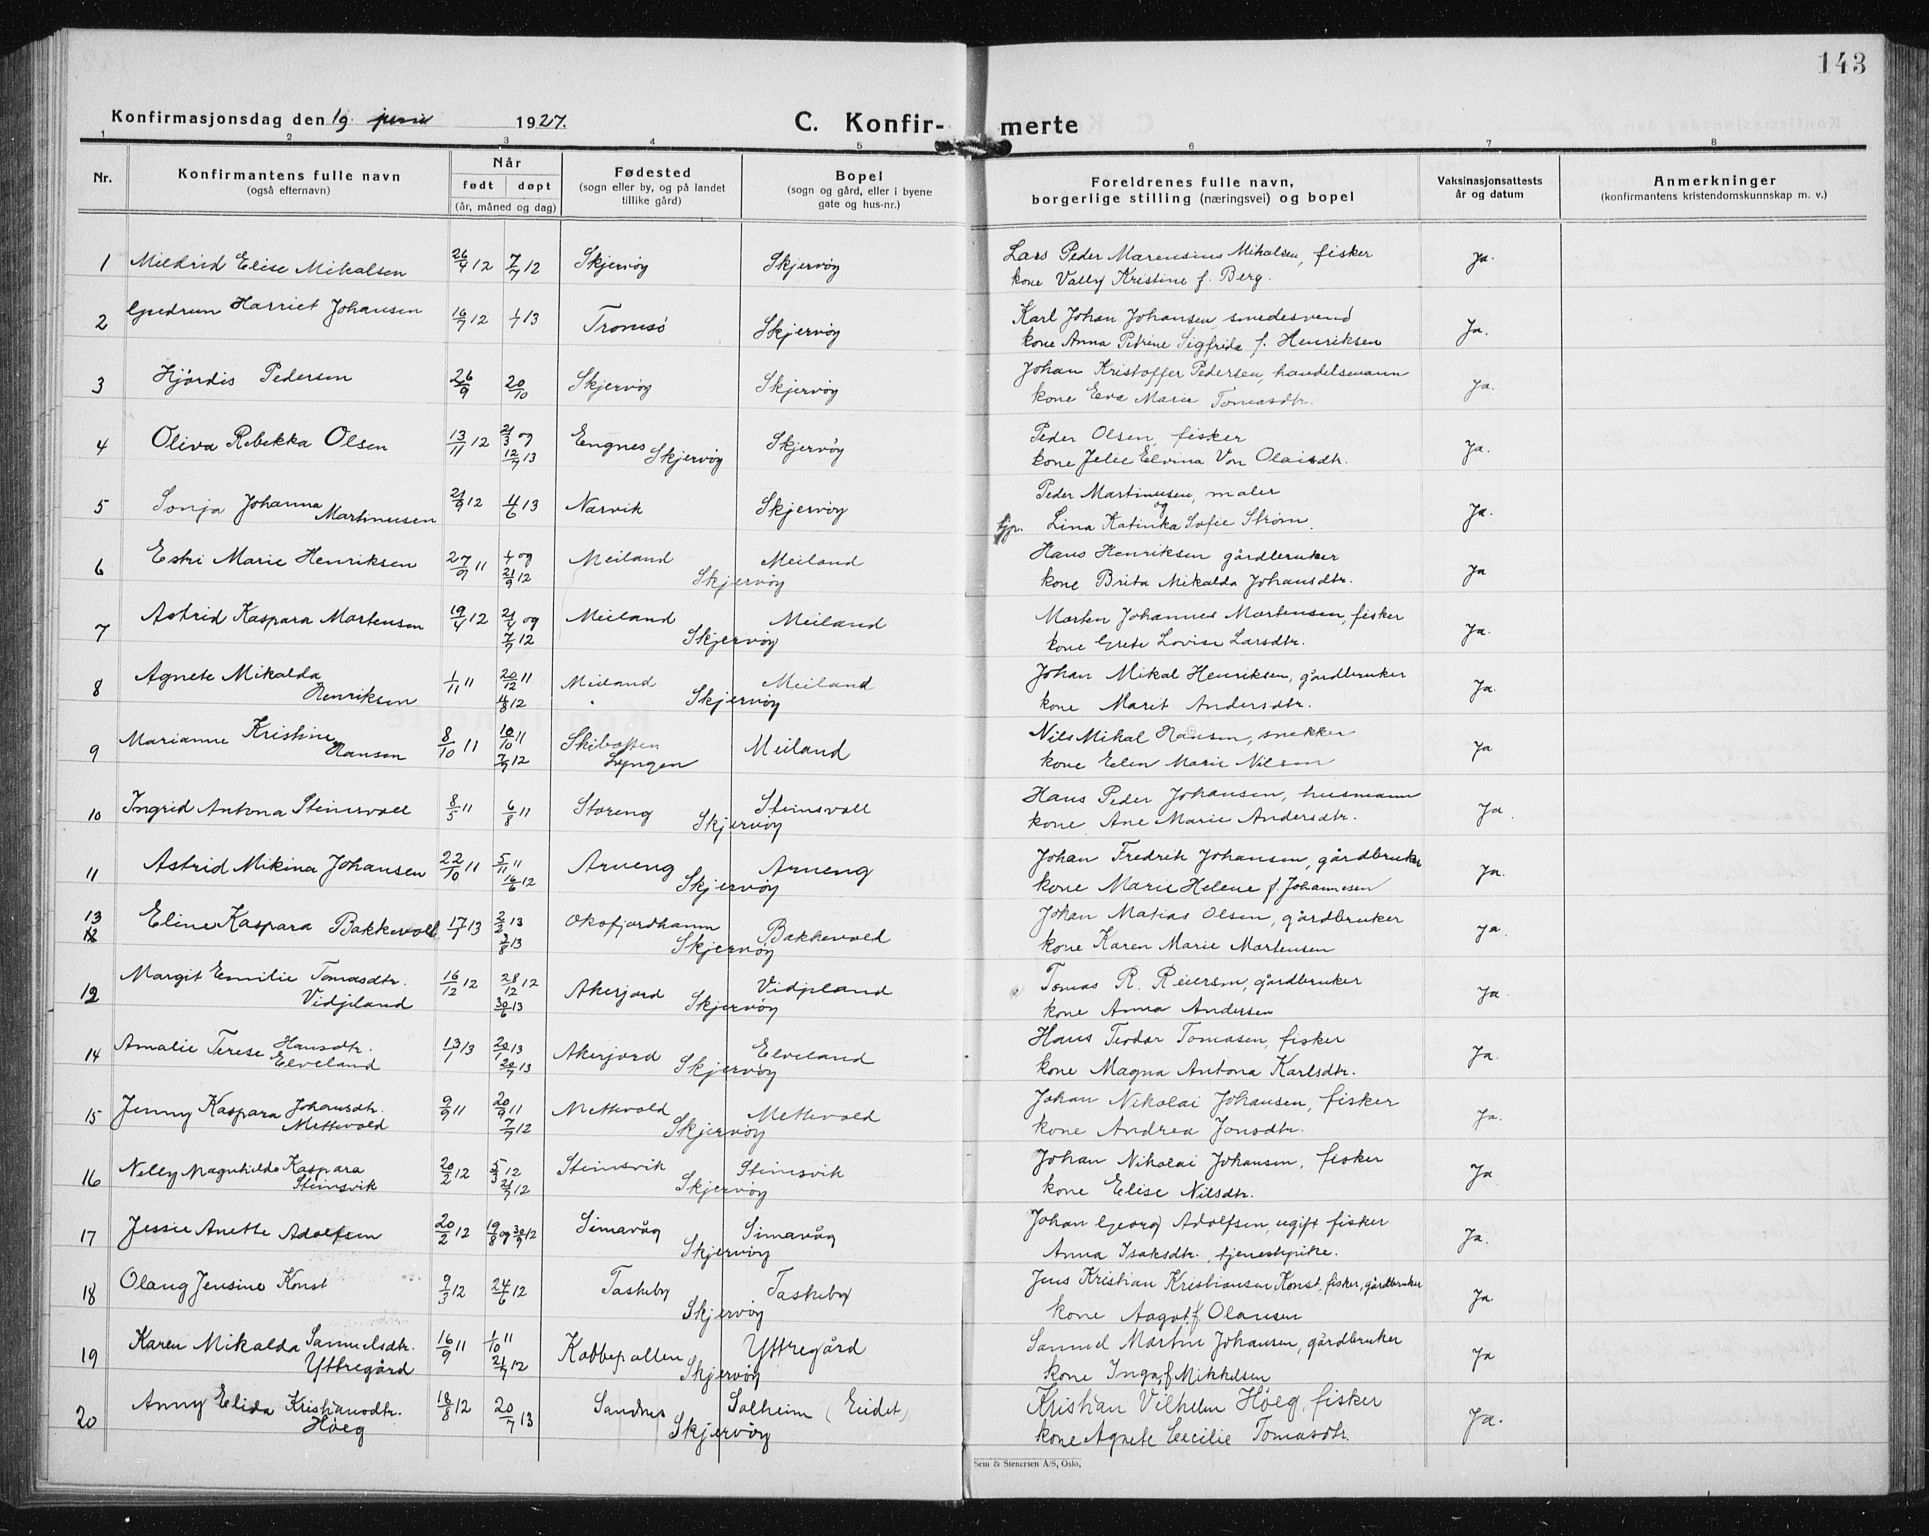 143
Konfirmasjonsdag den 19. juni 1927.
C. Konfir-merte
1 2 3 4 5 6 7 8
Nr. Konfirmantens fulle navn (også efternavn) Når født døpt (år, måned og dag) Fødested (sogn eller by, og på landet tillike gård) Bopel (sogn og gård, eller i byene gate og hus-nr.) Foreldrenes fulle navn, borgerlige stilling (næringsvei) og bopel Vaksinasjonsattests år og datum Anmerkninger (konfirmantens kristendomskunnskap m. v.)
1 Mildrid Elise Mikalsen 26/4 12 7/7 12 Skjervøy Skjervøy Lars Peder Marensius Mikalsen, fisker Ja.
kone Vally Kristine f. Berg.
2 Gudrun Harriet Johansen 16/7 12 1/1 13 Tromsø Skjervøy Karl Johan Johansen, smedesvend Ja.
kone Anna Petrine Sigfrida f. Henriksen
3 Hjördis Pedersen 26/9 20/10 Skjervøy Skjervøy Johan Kristoffer Pedersen, handelsmann Ja.
kone Eva Marie Tomasdtr.
4 Oliva Rebekka Olsen 13/11 12 21/3 og Engnes Skjervøy Peder Olsen, fisker Ja.
12/7 13 Skjervøy kone Jelie Elvina Von Olaisdtr.
5 Sonja Johanna 21/9 12 4/6 13 Narvik Skjervøy Peder Martinusen, maler Ja.
Martinusen og
tjp. Lina Katinka Sofie Strøm.
6 Estri Marie Henriksen 27/9 11 1/1 og Meiland Meiland Hans Henriksen gårdbruker Ja
21/9 12 Skjervøy kone Brita Mikalda Johansdtr.
7 Astrid Kaspara Mortensen 19/4 12 21/4 og Meiland Meiland Morten Johannes Mortensen, fisker Ja.
7/7 12 Skjervøy kone Grete Lovise Larsdtr.
8 Agnete Mikalda 1/11 11 20/12 11 Meiland Meiland Johan Mikal Henriksen, gårdbruker Ja.
Henriksen 4/8 12 Skjervøy kone Marit Andersdtr.
9 Marianne Kristine 8/10 11 10/10 11 Skibotten Meiland Nils Mikal Hansen, snekker Ja
Hansen 7/7 12 Lyngen kone Elen Marie Nilsen
10 Ingrid Antona Steinsvoll 8/5 11 6/8 11 Storeng Steinsvoll Hans Peder Johansen, husmann Ja.
Skjervøy kone Ane Marie Andersdtr.
11 Astrid Mikina Johansen 22/10 11 5/11 11 Arneng Arneng Johan Fredrik Johansen, gårdbruker Ja.
16/6 12 Skjervøy kone Marie Helene f. Johannesen
13 Eline Kaspara Bakkevold 17/1 13 2/2 13 Oksfjordhamn Bakkevold Johan Matias Olsen, gårdbruker Ja.
12 3/8 13 Skjervøy kone Karen Marie Mortensen
12 Margit Emilie Tomasdtr. 16/12 12 28/12 12 Akerjord Vidjeland Tomas R. Reiersen, gårdbruker Ja.
Vidjeland 30/6 13 Skjervøy kone Anna Andersen
14 Amalie Terese Hansdtr. 13/1 13 20/1 13 Akerjord Elveland Hans Teodor Tomasen, fisker Ja.
Elveland 20/7 13 Skjervøy kone Magna Antona Karlsdtr.
15 Jenny Kaspara Johansdtr. 9/9 11 20/9 11 Mettevold Mettevold Johan Nikolai Johansen, fisker Ja.
Mettevold 7/7 12 Skjervøy kone Andrea Jonsdtr.
16 Nelly Magnhilda Kaspara 20/2 12 5/3 12 Steinsvik Steinsvik Johan Nikolai Johansen, fisker Ja
Steinsvik 21/7 12 Skjervøy kone Elise Nilsdtr.
17 Jessie Anette Adolfsen 20/2 12 19/8 og 30/9 12 Simavåg Simavåg Johan Georg Adolfsen, ugift fisker Ja.
Skjervøy Anna Isaksdtr. tjenestepike.
18 Olaug Jensine Konst 9/3 12 24/6 12 Taskeby Taskeby Jens Kristian Kristiansen Konst, fisker, gårdbruker Ja.
Skjervøy kone Aagot f. Olausen
19 Karen Mikalda Samuelsdtr. 16/9 11 1/10 11 Kobbepollen Yttregård Samuel Martin Johansen, gårdbruker Ja
Yttregård 21/7 12 Skjervøy kone Inga f. Mikkelsen
20 Anny Elida Kristiansdtr. 18/8 12 20/7 13 Sandnes Solheim (Eidet) Kristian Vilhelm Höeg, fisker Ja.
Höeg Skjervøy kone Agnete Cecilie Tomasdtr.
Sem & Stenersen A/S, Oslo.